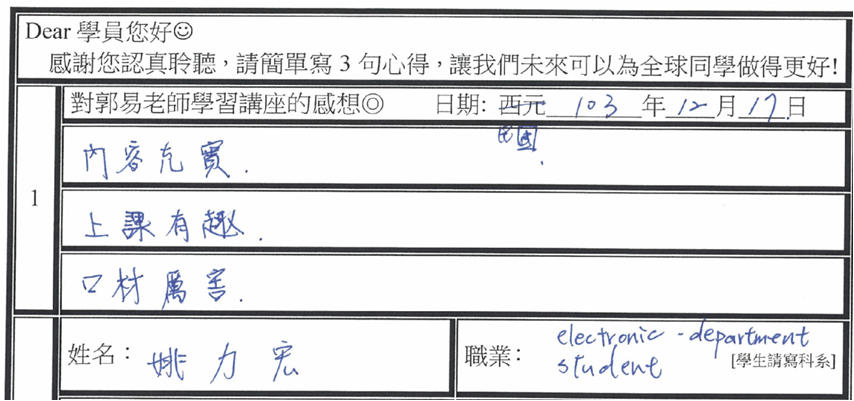 Dear 學員您好☺
感謝您認真聆聽，請簡單寫 3 句心得，讓我們未來可以為全球同學做得更好!
對郭易老師學習講座的感想◎ 日期: 西元 103 年 12 月 17 日
民國
1
內容充實.
上課有趣.
口材厲害.
姓名： 姚力宏
職業： electronic - department
student [學生請寫科系]